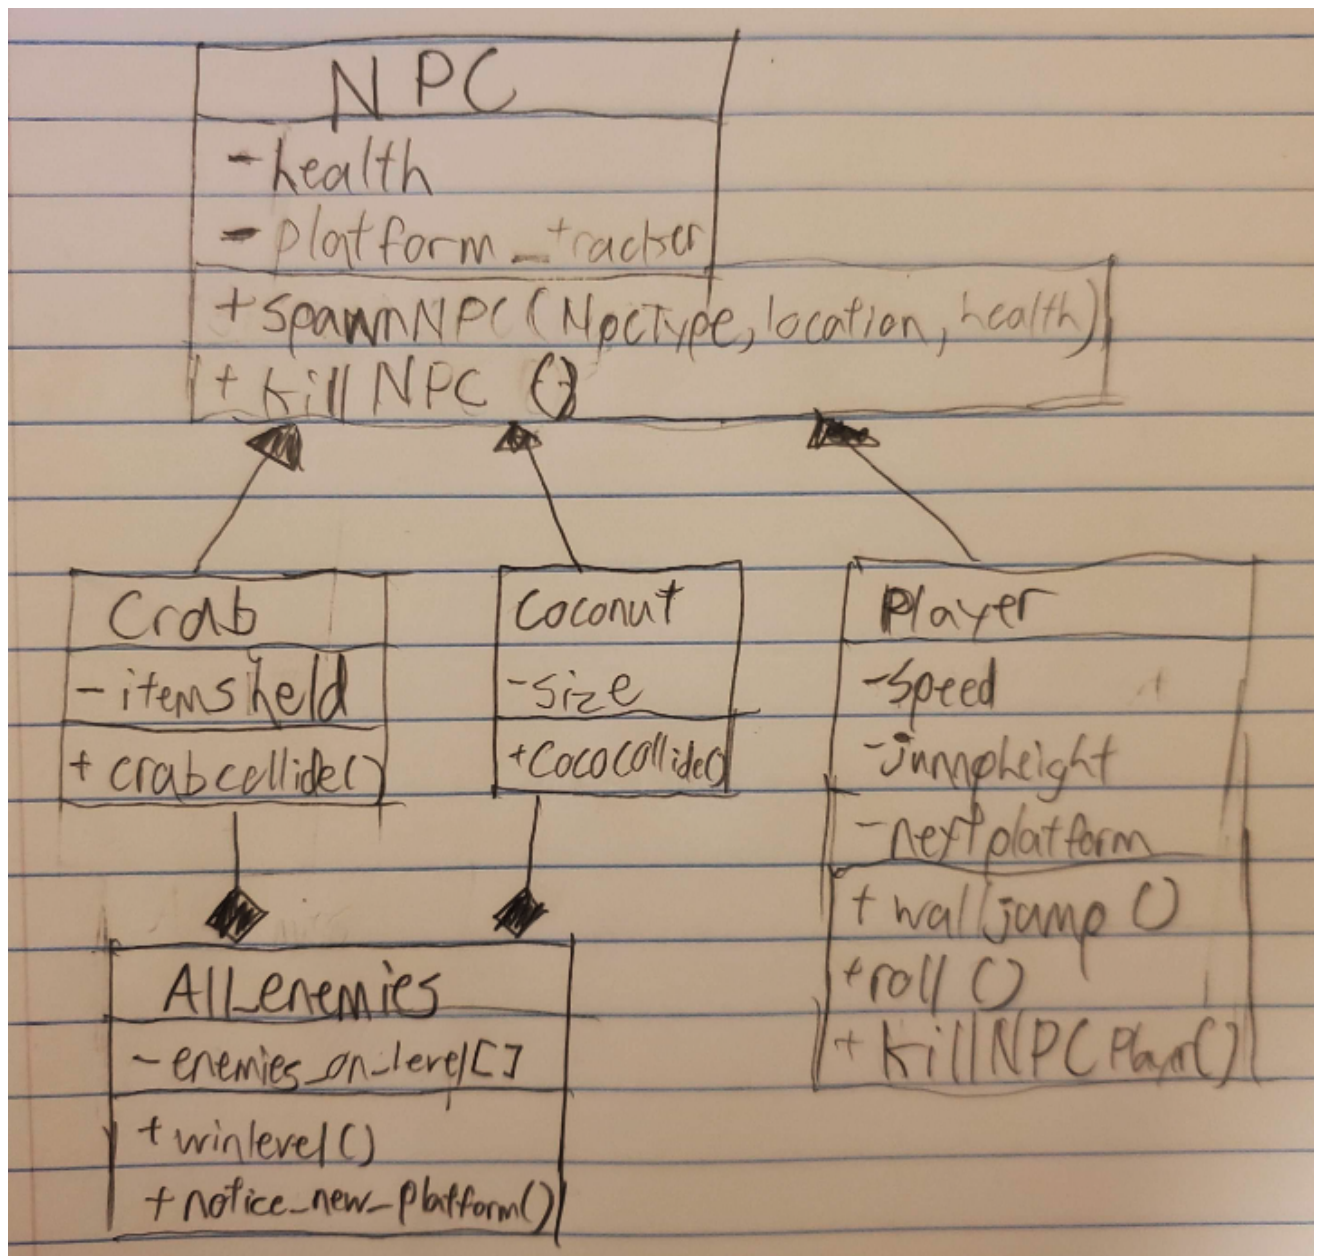 NPC
- health
- platform_tracker
+ spawnNPC(NpcType, location, health)
+ KillNPC ()
Crab
- items held
+ crabcollide()
Coconut
- size
+ Cococollide()
Player
- speed
- jumpheight
- nextplatform
+ walljump ()
+ roll ()
+ KillNPCPlayer()
All_enemies
- enemies_on_level[]
+ winlevel()
+ notice_new_platform()